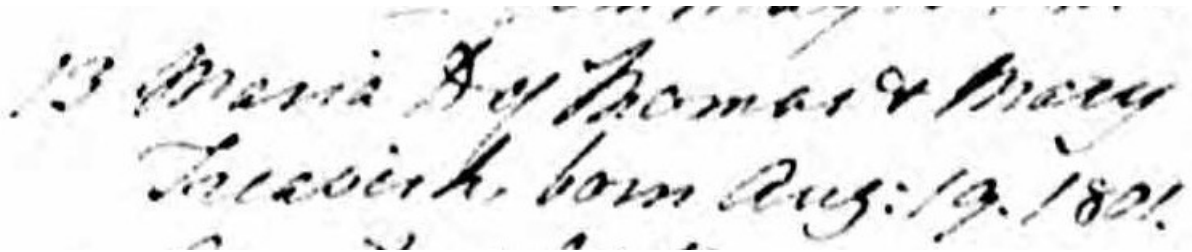 13 Maria D of Thomas & Mary
born Aug: 19. 1801.